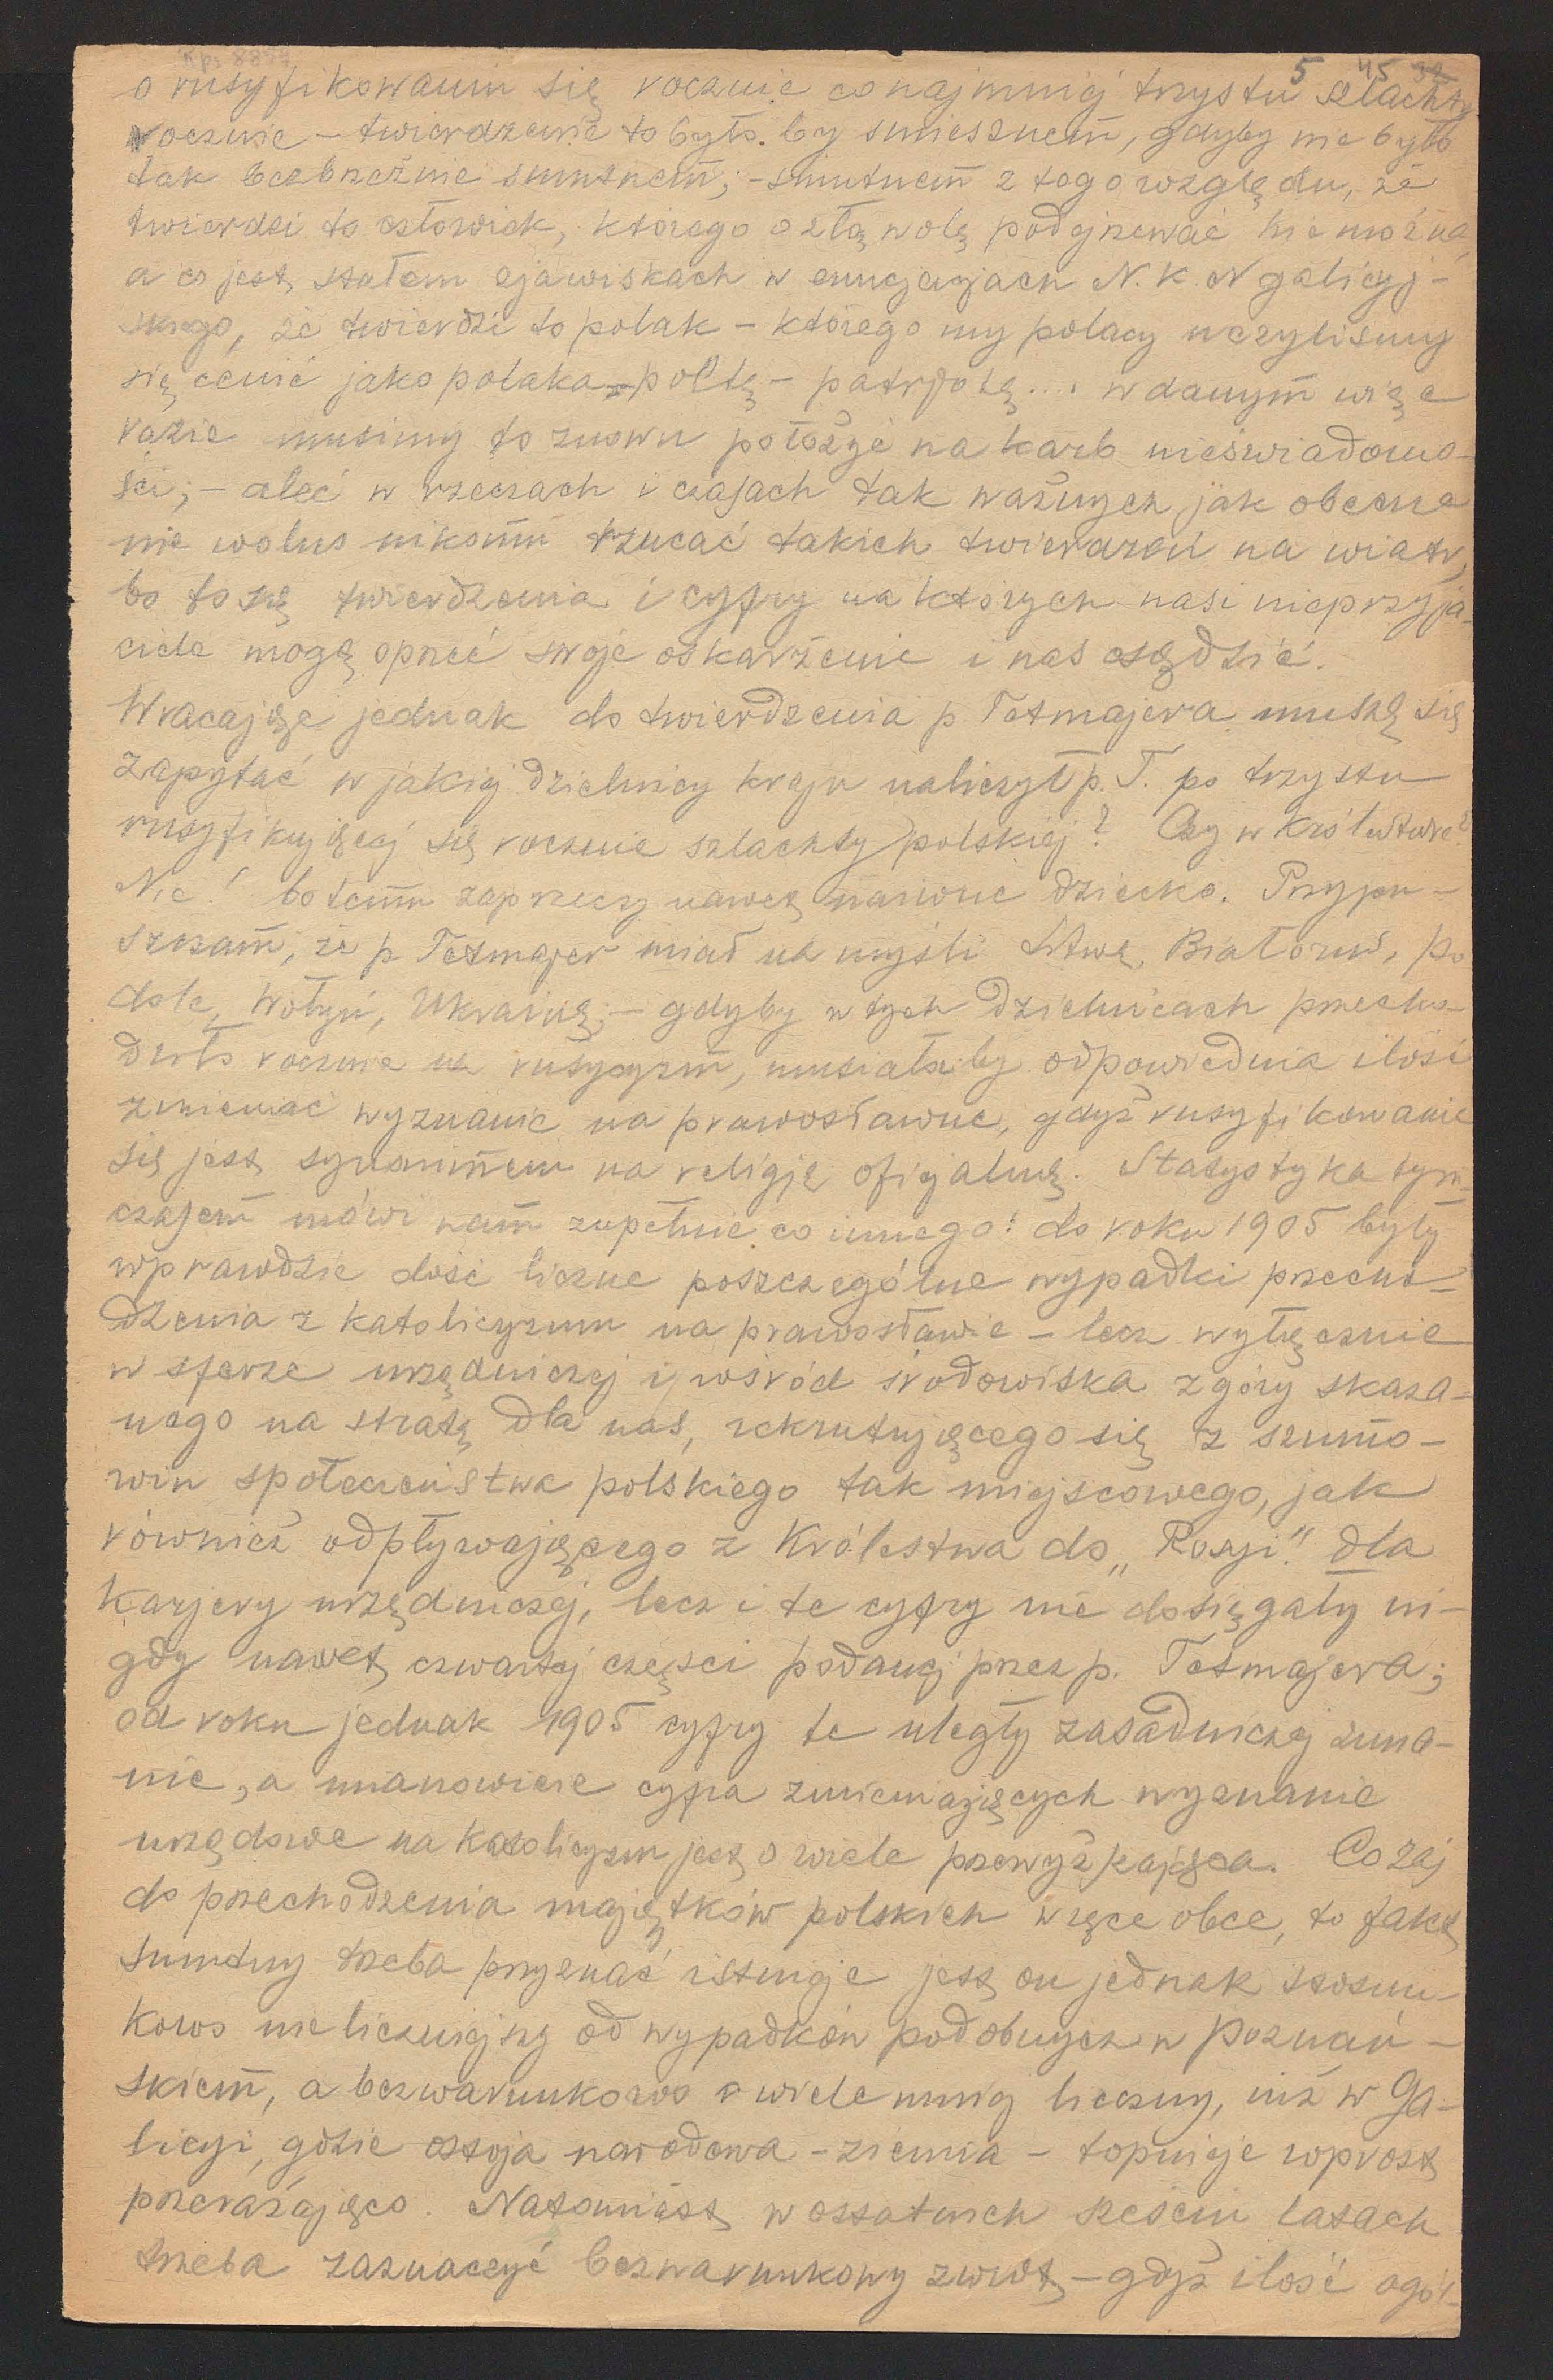 5 45 92
o rusyfikowaniu się rocznie conajmniej trzystu szlachty
rocznie – twierdzenie to było by śmiesznem, gdyby nie było
tak bezbrzeżnie smutnem; – smutnem z tego względu, że
twierdzi to człowiek, którego o złą wolę podejrzewać nie można
a co jest stałem zjawiskach w enuncjacjach N. K. N galicyj-
skiego, że twierdzi to polak – którego my polacy uczyliśmy
się cenić jako polaka – poetę – patrjotę.... w danym więc
razie musimy to znowu położyć na karb nieświadomo-
ści; – aleć w rzeczach i czasach tak ważnych jak obecne
nie wolno nikomu rzucać takich twierdzeń na wiatr,
bo to są twierdzenia i cyfry na których nasi nieprzyja-
ciele mogą oprzeć swoje oskarżenie i nas osądzić.
Wracając jednak do twierdzenia p Tetmajera muszę się
zapytać w jakiej dzielnicy kraju naliczył p. T. po trzystu
rusyfikującej się rocznie szlachty polskiej? Czy w Królestwie?
Nie! bo temu zaprzeczy nawet naiwne dziecko. Przypu-
szczam, że p Tetmajer miał na myśli Litwę, Białoruś, Po
dole, Wołyń, Ukrainę; – gdyby w tych dzielnicach przecho-
dziło rocznie na rusycyzm, musiałaby odpowiednia ilość
zmieniać wyznanie na prawosławne, gdyż rusyfikowanie
się jest synonimem na religję oficjalną. Statystyka tym
czasem mówi nam zupełnie co innego: do roku 1905 były
wprawdzie dość liczne poszczególne wypadki przecho-
dzenia z katolicyzmu na prawosławie – lecz wyłącznie
w sferze urzędniczej i wśród środowiska z góry skaza-
nego na stratę dla nas, rekrutującego się z szumo-
win społeczeństwa polskiego tak miejscowego, jak
również odpływającego z Królestwa do „Rosji" dla
karjery urzędniczej, lecz i te cyfry nie dosięgały ni-
gdy nawet czwartej części podanej przez p. Tetmajera;
od roku jednak 1905 cyfry te uległy zasadniczej zmia-
nie, a mianowicie cyfra zmieniających wyznanie
urzędowe na katolicyzm jest o wiele przewyższająca. Co zaś
do przechodzenia majątków polskich w ręce obce, to fakt
smutny trzeba przyznać istnieje jest on jednak stosun-
kowo nie liczniejszy od wypadków podobnych w Poznań-
skiem, a bezwarunkowo o wiele mniej liczny, niż w Ga-
licyi, gdzie ostoja narodowa – ziemia – topnieje wprost
przerażająco. Natomiast w ostatnich sześciu latach
trzeba zaznaczyć bezwarunkowy zwrot – gdyż ilość ogól-